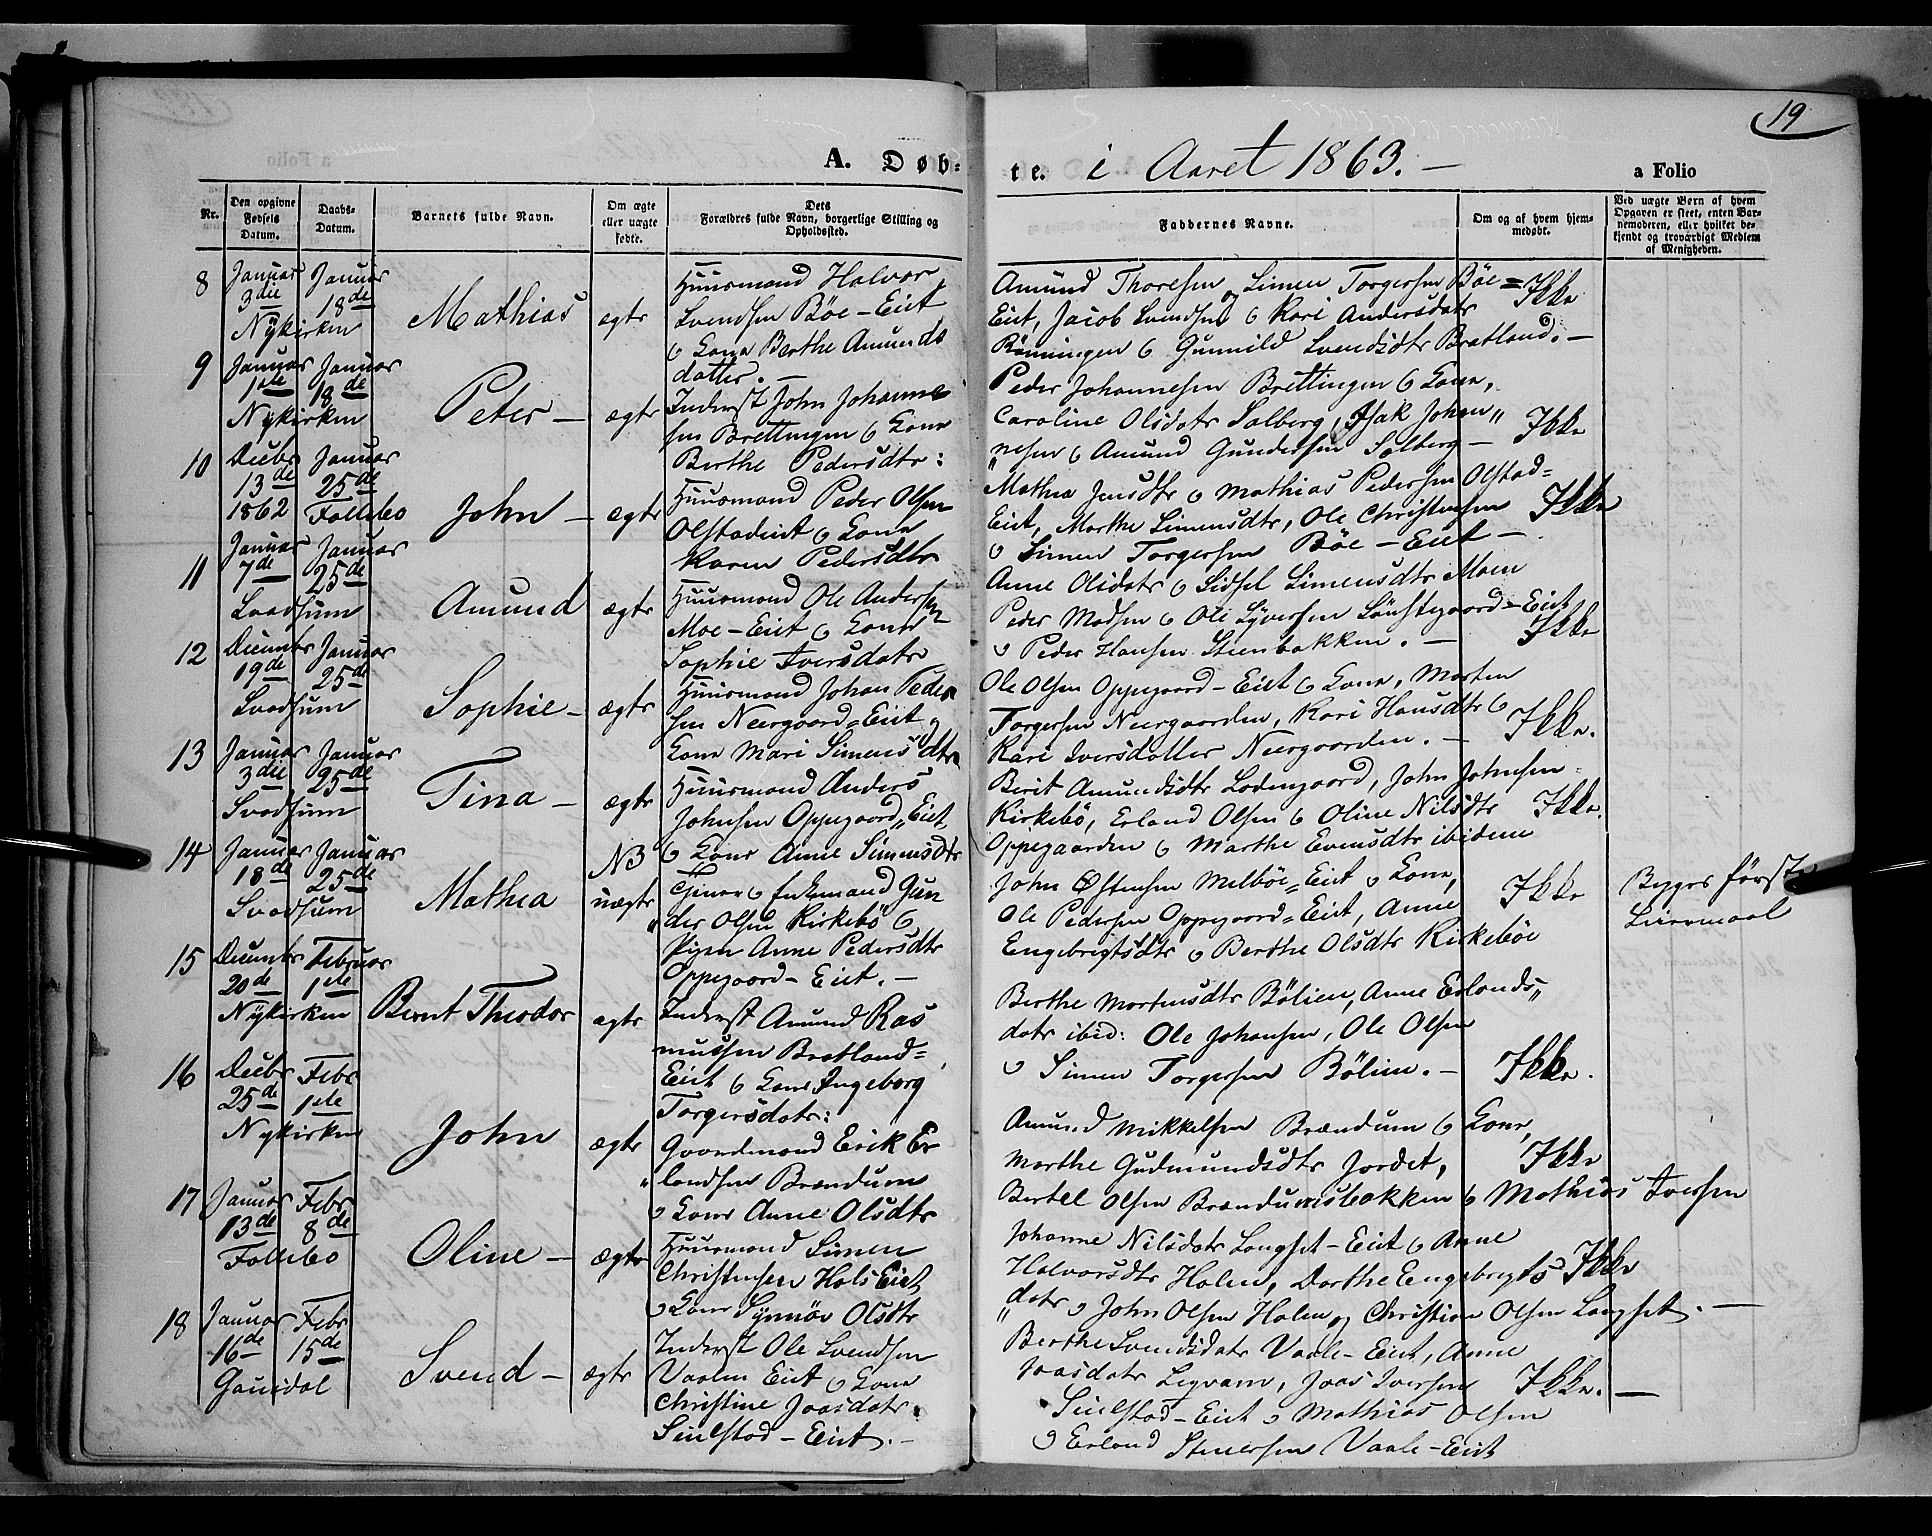 19
A. Døb-
te. i Aaret 1863. –
a Folio
Nr.
Den opgivne Fødsels Datum.
Daabs-Datum.
Barnets fulde Navn.
Om ægte eller uægte fødte.
Dets Forældres fulde Navn, borgerlige Stilling og Opholdssted.
Faddernes Navne.
Om og af hvem hjem-medøbt.
Ved uægte Børn af hvem Opgaven er skeet, enten Bar-nemoderen, eller hvilket be-kjendt og troværdigt Medlem af Menigheden.
8
Januar 3die
Januar 18de
Nykirken
Mathias
ægte
Huusmand Halvor
Svendsen Böe-Eiet
o Kone Berthe Amunds
datter. –
Amund Thoresen og Simen Torgersen Böe=
Eiet, Jacob Svendsen o Kari Andersdatr
Rönningen o Gunnild Svendsdtr Bratland. –
Ikke
9
Januar 1ste
Januar 18de
Nykirken
Peter –
ægte
Inderst John Johanne
sen Brettingen o Kone
Berthe Pedersdtr:
Peder Johannesen Brettingen o Kone,
Caroline Olsdatr Solberg, Isak Johan„
nesen o Amund Gundersen Solberg –
Ikke
10
Decbr 13de 1862
Januar 25de
Follebo
John –
ægte
Huusmand Peder Olsen
Olstadeiet o Kone
Karen Pedersdtr
Mathea Jensdtr o Mathias Pedersen Olstad=
Eiet, Marthe Simensdtr, Ole Christensen
o Simen Torgersen Böe-Eiet –
Ikke
11
Januar 7de
Januar 25de
Svadsum
Amund
ægte
Huusmand Ole Andersen
Moe-Eiet o Kone
Sophie Iversdatr
Anne Olsdatr o Sidsel Simensdtr Moen
Peder Madsen o Ole Syversen =Eiet
o Peder Hansen Steenbakken. –
Ikke
12
Decembr 19de
Januar 25de
Svadsum
Sophie –
ægte
Huusmand Johan Peder
sen Neergaard=Eiet og
Kone Mari Simensdtr
Ole Olsen Oppegaard-Eiet o Kone, Morten
Torgersen Neergaarden, Kari Hansdtr o
Kari Iversdatter Neergaarden. –
Ikke.
13
Januar 3die
Januar 25de
Svadsum
Tina –
ægte
Huusmand Anders
Johnsen Oppegaard„Eiet
o Kone Anne Simensdtr
Berit Amundsdtr Lodengaard, John Johnsen
Kirkebö, Erland Olsen o Oline Nilsdtr
Oppegaarden o Marthe Evensdtr ibidem
Ikke.
14
Januar 18de
Januar 25de
Svadsum
Mathea
NB
uægte
Enkemand Gun
„der Olsen Kirkebö o
Pigen Anne Pedersdtr
Oppegaard-Eiet. –
John Östensen Melböe=Eiet o Kone,
Ole Pedersen Oppegaard=Eiet, Anne
Engebrigtsdtr o Berthe Olsdtr Kirkeböe
Ikke
Begges förste
Leiermaal
15
Decembr 20de
Februar 1ste
Nykirken
Bernt Theodor
ægte
Inderst Amund Ras
mussen Bratland=
Eiet o Kone Ingeborg
Torgersdatr:
Berthe Mortensdtr Bölien, Anne Erlands„
datr ibid: Ole Johansen, Ole Olsen
o Simen Torgersen Bölien. –
Ikke.
16
Decbr 25de
Febr 1ste
Nykirken
John
ægte
Gaardmand Erik Er
„landsen Brændum
o Kone Anne Olsdtr
Amund Mikkelsen Brændum o Kone,
Marthe Gudmundsdtr Jordet,
Bertel Olsen Brændumsbakken o Mathias Iversen
Ikke
17
Januar 13de
Febr 8de
Follebo
Oline –
ægte
Huusmand Simen
Christensen HolsEiet
o Kone Synnöv Olsdtr
Johanne Nilsdatr Langset-Eiet o Anne
Halvorsdtr Holen, Dorthe Engebrigts
„datr o John Olsen Holen og Christian Olsen Langset. –
Ikke
18
Januar 16de
Febr 15de
Gausdal
Svend –
ægte
Inderst Ole Svendsen
Vaalen Eiet o Kone
Christine Joasdatr
–Eiet. –
Berthe Svendsdatr Vaale-Eiet, Anne
Joasdatr Legvam, Joas Iversen
–Eiet o Mathias Olsen
o Erland Steversen Vaale-Eiet
Ikke. –